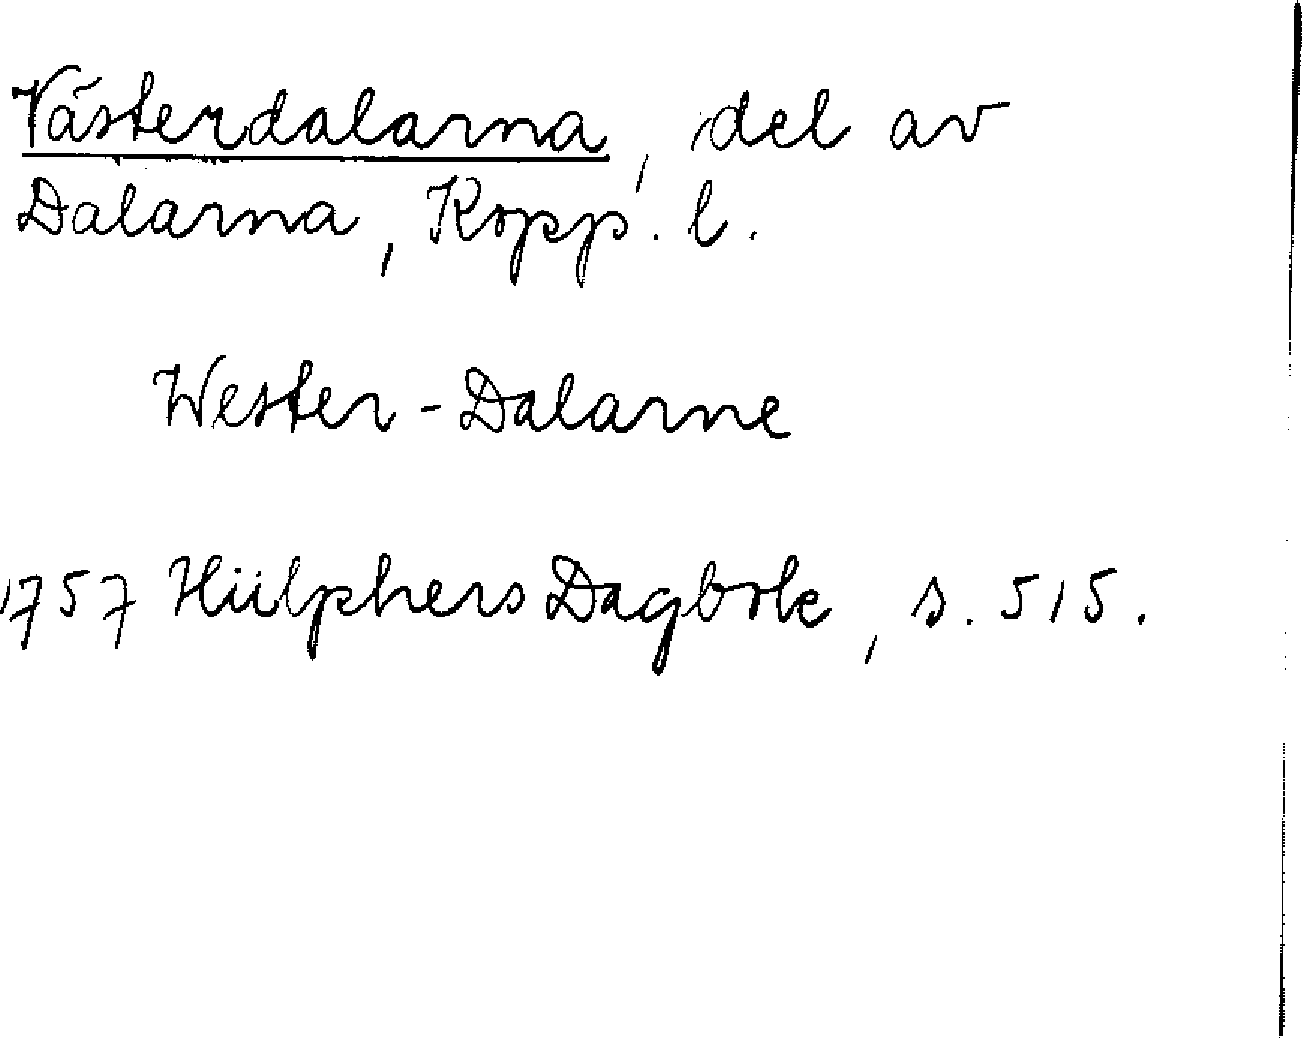 Västerdalarna, del av
Dalarna, Kopp. l.
Wester-Dalarne
1757 Hülphers Dagbok, s. 515.